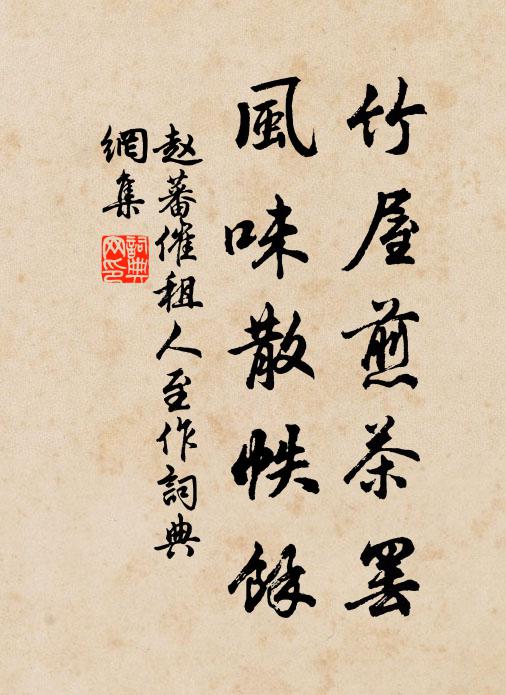 竹屋煎茶罢
風味散帙餘
赵蕃催租人至作詞典
網集
詞典网印